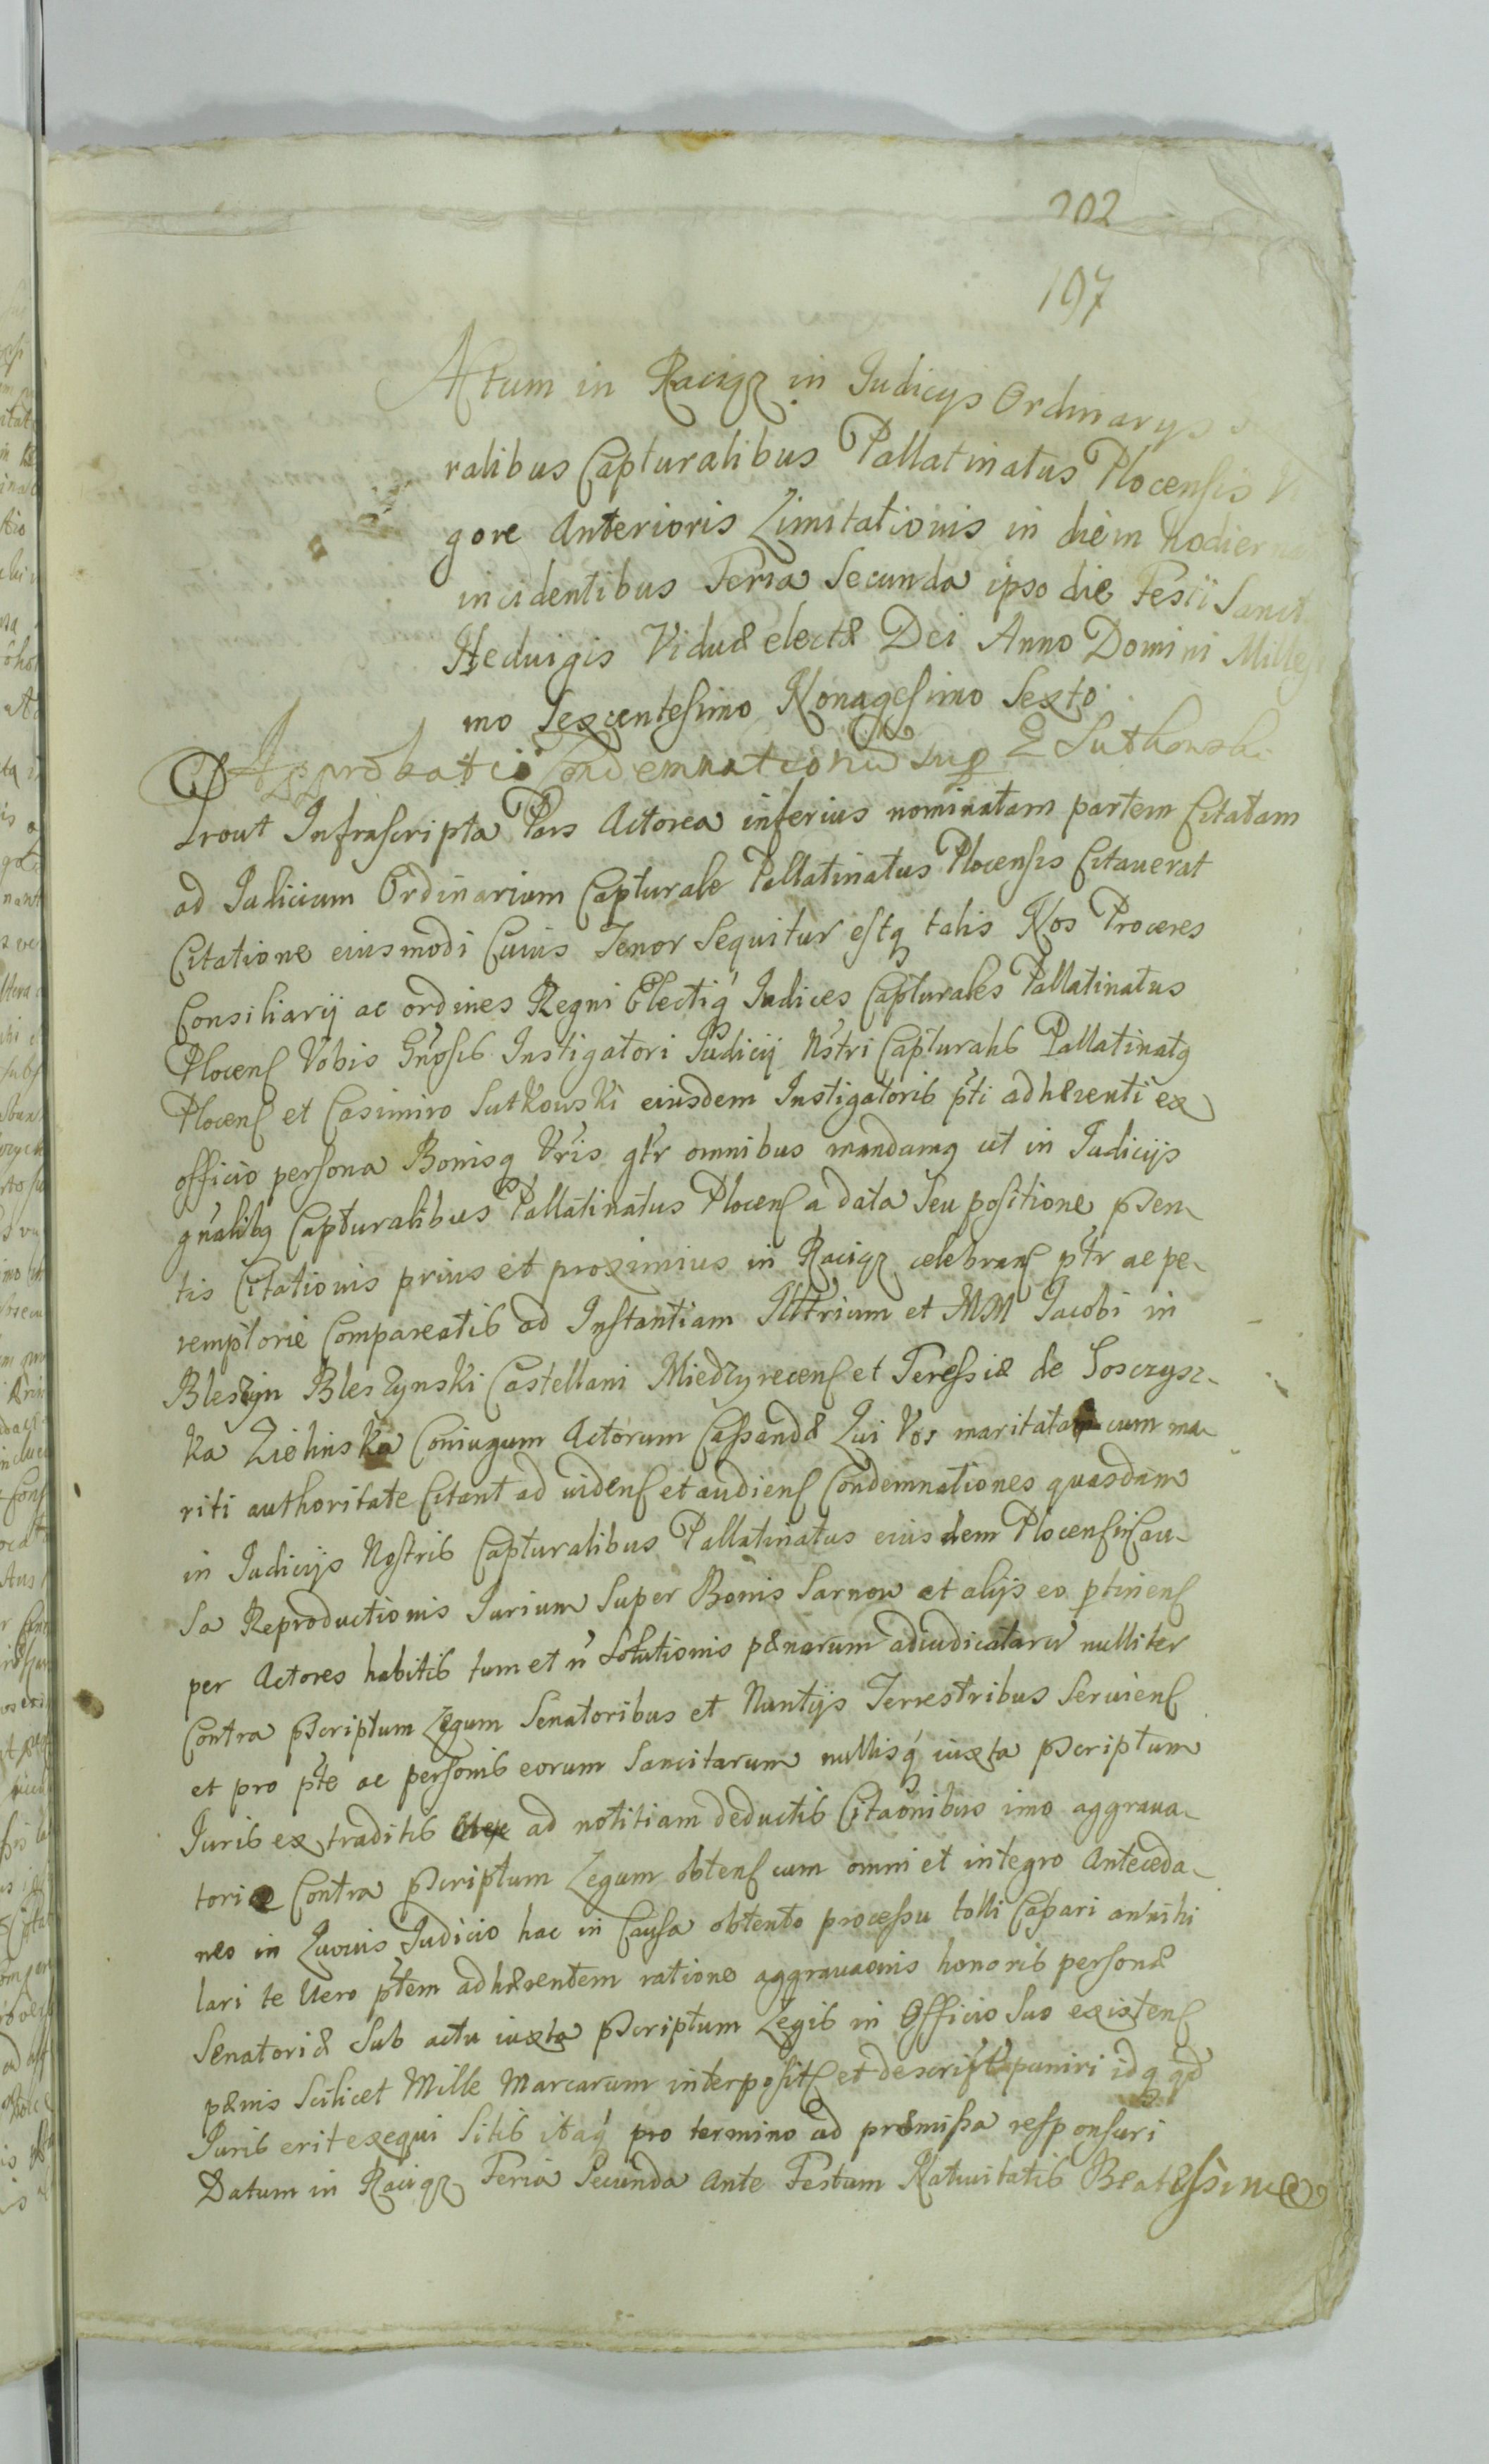 202
197
Actum in Raciąz in Judicys Ordinarys
ralibus Capturalibus Pallatinatus Plocensis Vi
gore Anterioris Limitationis in diem hodierna
incidentibus Feria Secunda ipso die Festi Sanct
Heduigis Viduæ electæ Dei Anno Domini Millesi
mo Sexcentesimo Nonagesimo Sexto
Approbatio Condemnationũ sup G Sutkowski
Prout Infrascripta Pars Actorea inferius nominatam partem Citatam
ad Judicium Ordinarium Capturale Pallatinatus Plocensis Citauerat
Citatione eiusmodi Cuius Tenor Sequitur estq talis Nos Proceres
Consiliarij ac ordines Regni Electiq́ Judices Capturales Pallatinatus
Plocens Vobis Gnosis Instigatori Judicij Nstri Capturalis Pallatinatq
Plocens et Casimiro Sutkowski eiusdem Instigatoris pti adhærenti ex
officio persona Bonisq Vris gtr omnibus mandamq ut in Judicijs
gnalibq Capturalibus Pallatinatus Plocens a data Seu positione psen
tis Citationis prius et proximius in Raciąz celebrans ptr ac pe
remptorie Compareatis ad Instantiam Illtrium et MM Jacobi in
Bleszyn Bleszynski Castellani Miedzyrecens et Teressiæ de Soszysz
ka Zielinska Coniugum Actorum Cassandæ Qui Vos maritatam cum ma
riti authoritate Citant ad uidens et audiens Condemnationes quasdam
in Judicijs Nostris Capturalibus Pallatinatus eiusdem Plocensis in Cau
sa Reproductionis Jurium Super Bonis Sarnow et alijs eo ptinens
per Actores habitis tum et ñ Solutionis pænarum adiudicatarũ nulliter
Contra pscriptum Legum Senatoribus et Nuntijs Terrestribus Seruiens
et pro pte ac personis eorum Sancitarum nullisq́ iuxta pscriptum
Juris extraditis ad notitiam deductis Citaõnibus imo aggraua
toriæ Contra pscriptum Legum obtens cum omni et integro Anteceda
neo in Quouis Judicio hac in Causa obtento processu tolli Cassari annihi
lari te Uero ptem adhærentem ratione aggrauaonis honoris personæ
Senatoriæ Sub actu iuxta pscriptum Legis in Officio Suo existens
pænis Scilicet Mille Marcarum interposits et descript puniri idq qd
Juris erit exequi Sitis itaq́ pro termino ad præmissa responsuri
Datum in Raciąz Feria Secunda Ante Festum Natiuitatis Beatissimæ